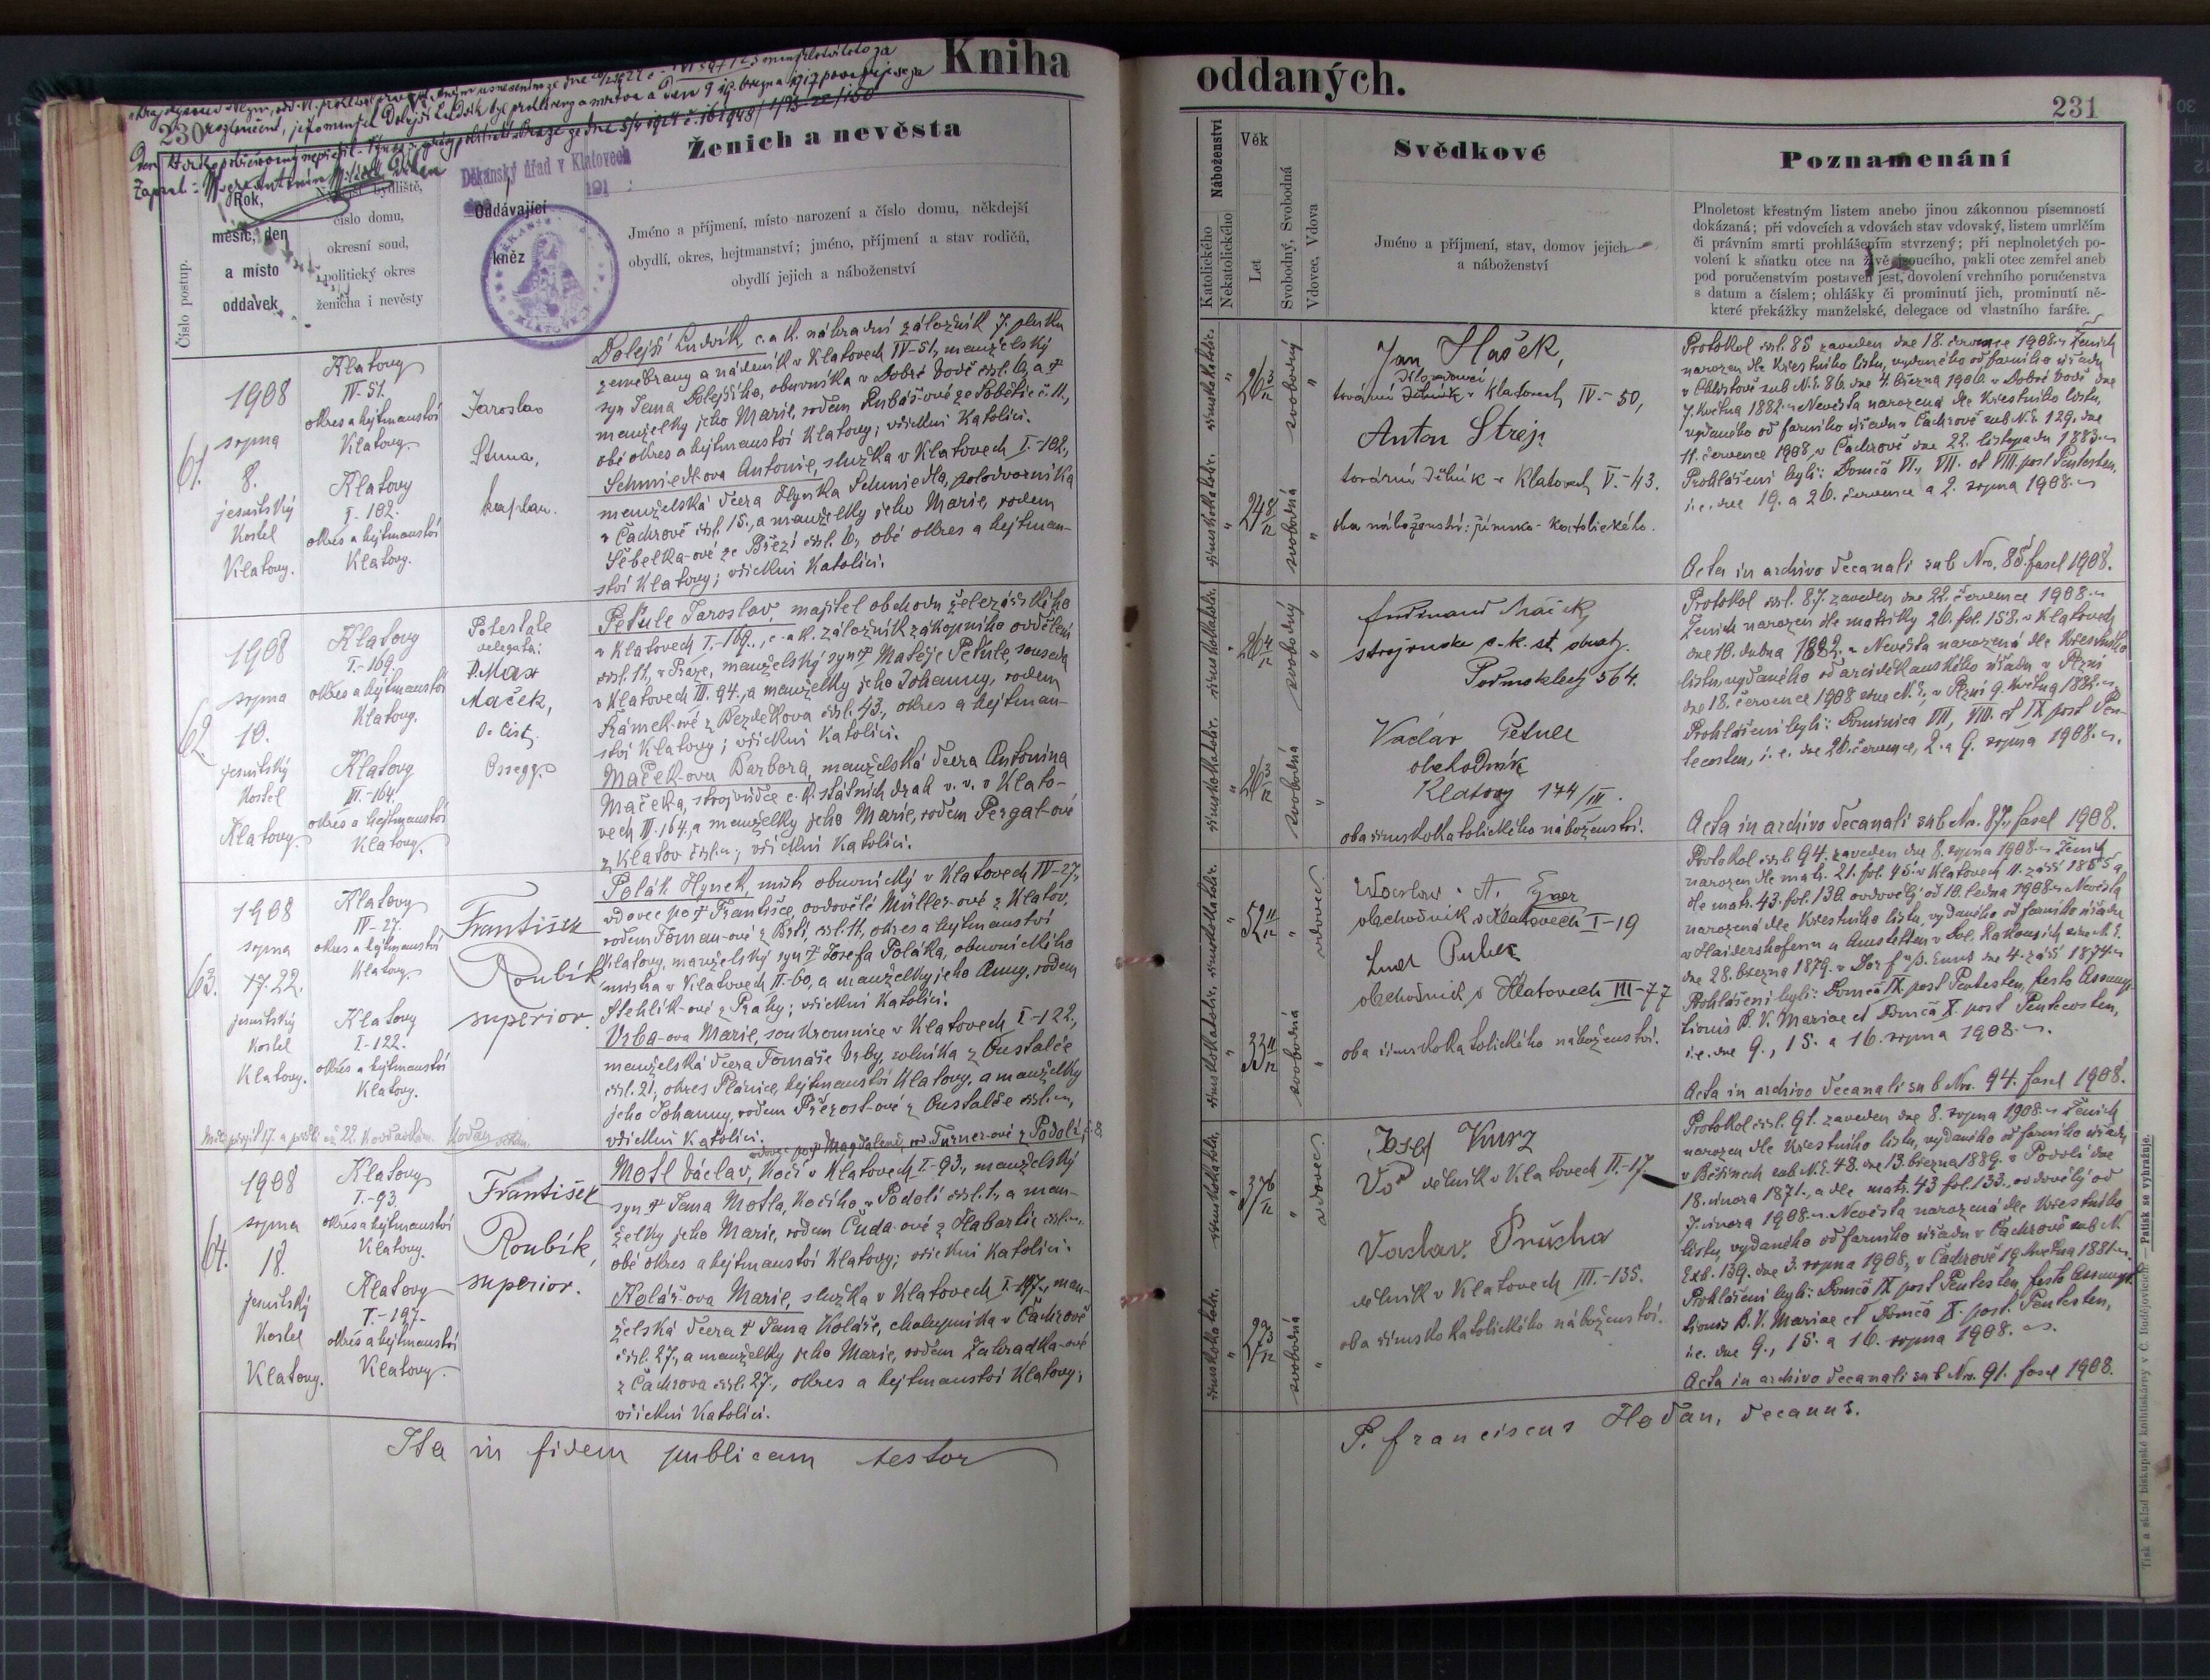 Kniha
230
Děkanský úřad v Klatovech
191 :
Ženich a nevěsta
Číslo postup.
Rok,
měsíc, den
a místo
oddavek
bydliště,
číslo domu,
okresní soud,
politický okres
ženicha i nevěsty
Oddávající
kněz
Jméno a příjmení, místo narození a číslo domu, někdejší
obydlí, okres, hejtmanství; jméno, příjmení a stav rodičů,
obydlí jejich a náboženství
61.
1908
srpna
8.
jesuitský
kostel
Klatovy.
Klatovy
IV-51.
okres a hejtmanství
Klatovy.
Klatovy
I.-102.
okres a hejtmanství
Klatovy.
Jaroslav
kaplan.
Dolejší Ludvík, c. a k. náhradní záložník 7. pluku
zeměbrany a nádeník v Klatovech IV-51, manželský
syn Jana Dolejšího, obuvníka v Dobré Vodě čísl. 6, a †
manželky jeho Marie, rodem Rubáš-ové ze Soběšic č. 11.,
obé okres a hejtmanství Klatovy; všickni Katolíci.
Schmiedlova Antonie, služka v Klatovech I.-102.,
manželská dcera Hynka Schmiedla, polodvorníka
v Čachrově čísl. 15., a manželky jeho Marie, rodem
Šebelka-ové ze Březí čísl. 6., obé okres a hejtman-
ství Klatovy; všickni Katolíci.
62.
1908
srpna
10.
jesuitský
kostel
Klatovy.
Klatovy
I.-169.
okres a hejtmanství
Klatovy.
Klatovy
III.-164.
okres a hejtmanství
Klatovy.
Potestate
delegata:
P. Max
Maček,
O. Cist.
Ossegg.
Petule Jaroslav, majitel obchodu železářského
v Klatovech I.-169., c. a k. záložník zákopního oddělení
čísl. 11, v Praze, manželský syn † Matěje Petule, souseda
v Klatovech III. 94., a manželky jeho Johanny, rodem
Krámek-ové z Bezděkova čísl. 43., okres a hejtman-
ství Klatovy; všickni Katolíci.
Maček-ova Barbora, manželská dcera Antonína
Mačeka, strojvůdce c. k. státních drah v. v. v Klato-
vech III-164, a manželky jeho Marie, rodem Pergat-ové
z Klatov čísl.; všickni Katolíci.
63.
1908
srpna
17. 22.
jesuitský
kostel
Klatovy.
Klatovy
IV-27.
okres a hejtmanství
Klatovy.
Klatovy
I-122.
okres a hejtmanství
Klatovy.
František
Roubík
superior.
Polák Hynek, mistr obuvnický v Klatovech IV-27,
vdovec po † Františce, ovdovělé Müller-ové z Klatov,
rodem Toman-ové z čísl. 11, okres a hejtmanství
Klatovy, manželský syn † Josefa Poláka, obuvnického
mistra v Klatovech II.-60, a manželky jeho Anny, rodem
Stehlík-ové z Prahy; všickni Katolíci.
Vrba-ova Marie, soukromnice v Klatovech I-122,
manželská dcera Tomáše Vrby, rolníka z Oustalče
čísl. 21., okres Plánice, hejtmanství Klatovy, a manželky
jeho Johanny, rodem Přerost-ové z Oustalče čísl.,
všickni Katolíci.
vdovec po † Magdaleně, rod. Turner-ové z Podolí, č. 8,
64.
1908
srpna
18.
jesuitský
kostel
Klatovy.
Klatovy
I.-93.
okres a hejtmanství
Klatovy.
Klatovy
I.-197.
okres a hejtmanství
Klatovy.
František
Roubík,
superior.
Motl Václav, kočí v Klatovech I-93., manželský
syn † Jana Motla, kočího v Podolí čísl. 1., a man-
želky jeho Marie, rodem Čuda-ové z Habartic čísl.,
obé okres a hejtmanství Klatovy; všickni Katolíci.
Kolář-ova Marie, služka v Klatovech I-197., man-
želská dcera † Jana Koláře, chalupníka v Čachrově
čísl. 27., a manželky jeho Marie, rodem Zahradka-ové
z Čachrova čísl. 27., okres a hejtmanství Klatovy;
všickni Katolíci.
Ita in fidem publicam testor
oddaných.
231
Náboženství
Katolického
Nekatolického
Věk
Let
Svobodný, Svobodná
Vdovec, Vdova
Svědkové
Jméno a příjmení, stav, domov jejich
a náboženství
Poznamenání
Plnoletost křestným listem anebo jinou zákonnou písemností
dokázaná; při vdovcích a vdovách stav vdovský, listem umrlčím
či právním smrti prohlášením stvrzený; při neplnoletých po-
volení k sňatku otce na živě jsoucího, pakli otec zemřel aneb
pod poručenstvím postaven jest, dovolení vrchního poručenstva
s datum a číslem; ohlášky či prominutí jich, prominutí ně-
které překážky manželské, delegace od vlastního faráře.
římskokatolic.
svobodný
římskokatolic.
24 8/12
svobodná
Jan Hašek,
tovární dělník v Klatovech IV.-50,
Anton Strejc
tovární dělník v Klatovech V.-43.
oba náboženství: římsko-katolického.
Protokol čísl. 85 zaveden dne 18. července 1908. Ženich
narozen dle křestního listu, vydaného od farního úřadu
v Chlistově sub N.E. 86. dne 4. března 1906. v Dobré Vodě dne
7. května 1882. Nevěsta narozená dle křestního listu,
vydaného od farního úřadu v Čachrově sub N.E. 129. dne
11. července 1908, v Čachrově dne 22. listopadu 1883.
Prohlášeni byli: Domca VI., VII. et VIII. post Pentecosten,
i.e. dne 19. a 26. července a 2. srpna 1908.
Acta in archivo decanali sub Nro. 85. fascl 1908.
římskokatolic.
26 4/12
svobodný
římskokatolic.
svobodná
Ferdinand
strojvůdce c. k. st. drah
Podmokly 564.
Václav Petule
obchodník
Klatovy 174/III.
oba římskokatolického náboženství.
Protokol čísl. 87. zaveden dne 22. července 1908.
Ženich narozen dle matriky 26. fol. 158. v Klatovech
dne 10. dubna 1882. Nevěsta narozená dle křestního
listu, vydaného od arciděkanského úřadu v Plzni
dne 18. července 1908 sine N.E., v Plzni 9. května 1882.
Prohlášeni byli: Dominica VII, VIII. et IX post Pen-
tecosten, i. e. dne 26. července, 2. a 9. srpna 1908.
Acta in archivo decanali sub Nro. 87., fascl 1908.
římskokatolic.
52 11/12
vdovec
římskokatolic.
33 11/12
svobodná
obchodník v Klatovech I-19
obchodník v Klatovech III-77
oba římskokatolického náboženství.
Protokol čísl. 94. zaveden dne 8. srpna 1908. Ženich
narozen dle matr. 21. fol. 95. v Klatovech 11. září 1855, a
dle matr. 43. fol. 130. ovdovělý od 10. ledna 1908. Nevěsta
narozená dle křestního listu, vydaného od farního úřadu
v Haidershofenu u Amstetten v Dol. Rakousích sine N.E.
dne 28. března 1879. v Dorf a/d. Enns dne 4. září 1874.
Prohlášeni byli: Domca IX post Pentecosten, festo Assump-
tionis B. V. Mariae et Domca X. post Pentecosten,
i.e. dne 9., 15. a 16. srpna 1908.
Acta in archivo decanali sub Nro. 94. fascl 1908.
římskokatolic.
37 6/12
vdovec
římskokatolic.
27 3/12
svobodná
Josef Kurz
dělník v Klatovech II.-17
Václav Průcha
dělník v Klatovech III.-135.
oba římskokatolického náboženství.
Protokol čísl. 91. zaveden dne 8. srpna 1908. Ženich
narozen dle křestního listu, vydaného od farního úřadu
v Běšinech sub N.E. 48. dne 13. března 1889. v Podolí dne
18. února 1871., a dle matr. 43 fol. 133. ovdovělý od
7. února 1908. Nevěsta narozená dle křestního
listu, vydaného od farního úřadu v Čachrově sub N.
Exh. 139. dne 3. srpna 1908, v Čachrově 19. května 1881.
Prohlášeni byli: Domca IX post Pentecosten, festo Assump-
tionis B. V. Mariae et Domca X. post. Pentecosten,
i.e. dne 9., 15. a 16. srpna 1908.
Acta in archivo decanali sub Nro. 91. fascl 1908.
P. Franciscus Hodan, decanus.
Tisk a sklad biskupské knihtiskárny v Č. Budějovicích. — Patisk se vyhražuje.